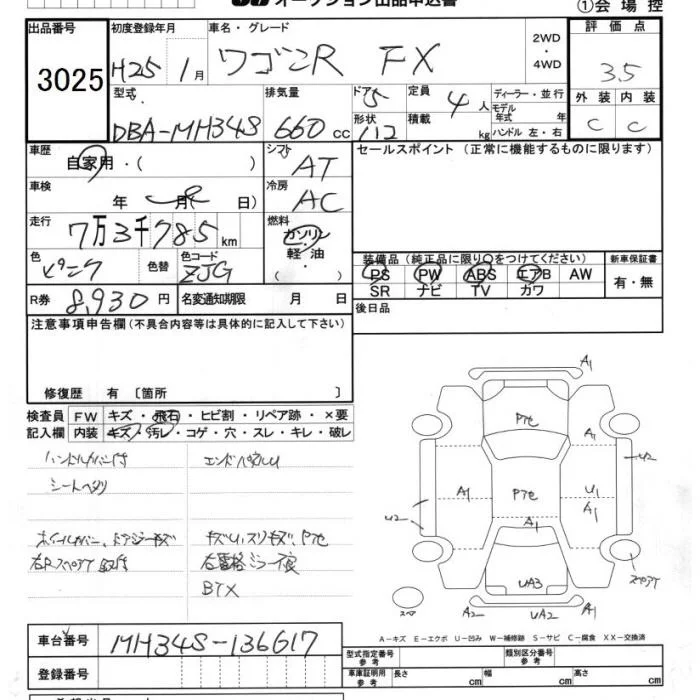 オークション出品申込書
①会場控
出品番号
3025
初度登録年月
H25 1月
車名・グレード
ワゴンR FX
2WD
・
4WD
評価点
3.5
型式
DBA-MH34S
排気量
660 cc
ドア
5
形状
定員
4人
積載
kg
ディーラー・並行
モデル年式 年
ハンドル 左・右
外装 内装
C C
車歴
自家用・( )
シフト
AT
セールスポイント (正常に機能するものに限ります)
車検
年 月( 日)
冷房
AC
走行
7万3千785km
燃料
ガソリン
軽油
色
ピンク
色替
色コード
ZJG
装備品 (純正品に限り○をつけてください)
PS PW ABS エアB AW
SR ナビ TV カワ
新車保証書
有・無
R券
8,930円
名変通知期限 月 日
後日品
注意事項申告欄(不具合内容等は具体的に記入して下さい)
修復歴 有 〔箇所 〕
検査員 FW キズ・飛石・ヒビ割・リペア跡・×要
記入欄 内装 キズ・汚レ・コゲ・穴・スレ・キレ・破レ
ハンドルカバー付
エンドパネルU
シートヘタリ
ホイールカバー、ドアミラーキズ
キズU、スリキズ、Pセ
右Rスペアタイヤ取付
BTX
A1
Pセ
A1
U2
A1
Pセ
U1
A1
A1
U2
UA3
スペアタイヤ
スペア
A2
UA2
A1
A−キズ E−エクボ U−凹み W−補修跡 S−サビ C−腐食 XX−交換済
車台番号
MH34S-136617
登録番号
型式指定番号
参考
類別区分番号
参考
車庫証明用
参考
長さ cm
幅 cm
高さ cm